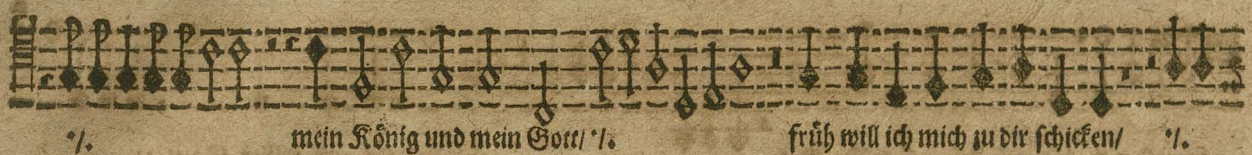 ·/. mein König und mein Gott/ ·/. früh will ich mich zu dir schicken/ ·/.